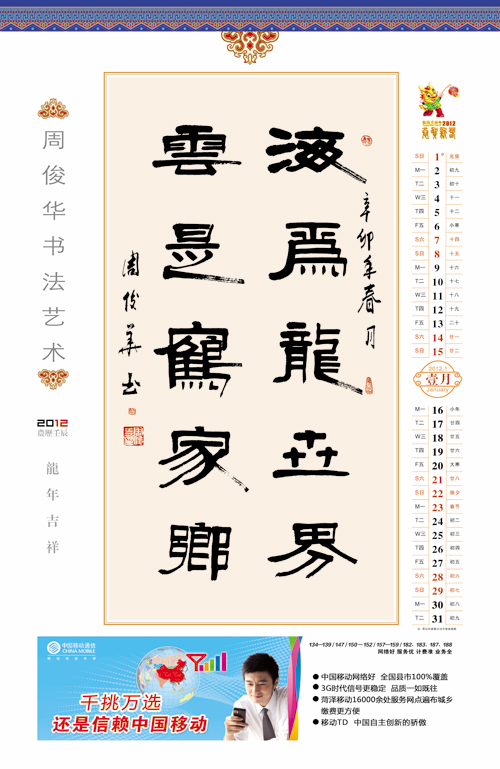 周俊华书法艺术
2012
農歷壬辰
龍年吉祥
海為龍世界
雲是鶴家鄉
辛卯年春月
周俊華书
2012
S日 1 元旦
M一 2 初九
T二 3 初十
W三 4 十一
T四 5 十二
F五 6 小寒
S六 7 十四
S日 8 十五
M一 9 十六
T二 10 十七
W三 11 十八
T四 12 十九
F五 13 二十
S六 14 廿一
S日 15 廿二
2012.1
壹月
January
M一 16 小年
T二 17 廿四
W三 18 廿五
T四 19 廿六
F五 20 大寒
S六 21 廿八
S日 22 除夕
M一 23 春节
T二 24 初二
W三 25 初三
T四 26 初四
F五 27 初五
S六 28 初六
S日 29 初七
M一 30 初八
T二 31 初九
中国移动通信
CHINA MOBILE
千挑万选
还是信赖中国移动
134—139/147/150—152/157—159/182、183、187、188
网络好 服务优 计费准 业务全
●中国移动网络好 全国县市100%覆盖
●3G时代信号更稳定 品质一如既往
●菏泽移动16000余处服务网点遍布城乡
缴费更方便
●移动TD 中国自主创新的骄傲